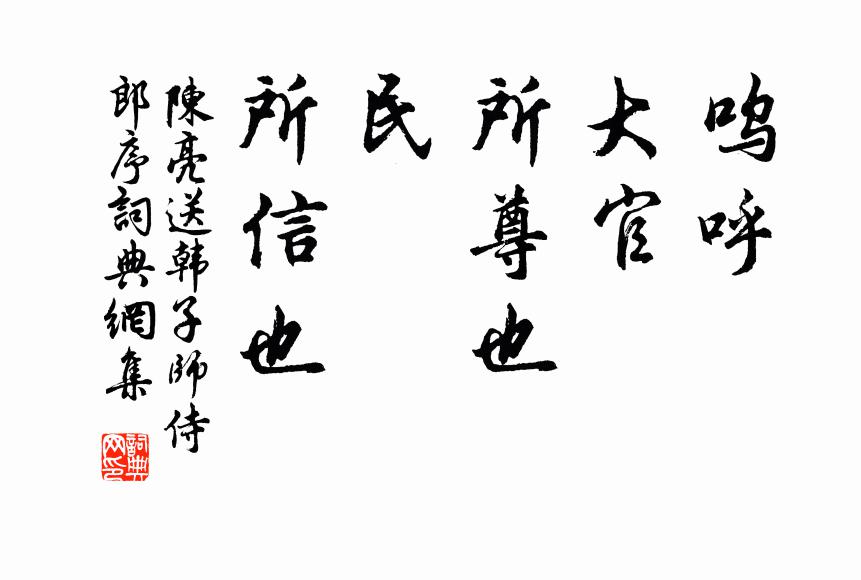 嗚呼
大官
所尊也
民
所信也
陳亮送韩子師侍
郎序詞典網集
詞典
网印